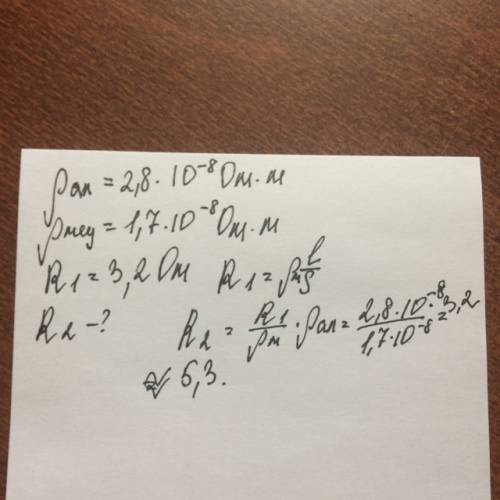 ρал = 2,8 · 10⁻⁸ Ом · м
ρмеч = 1,7 · 10⁻⁸ Ом · м
R1 = 3,2 Ом R1 = ρм l/S
R2 - ? R2 = R1/ρм · ρал = 2,8 · 10⁻⁸ · 3,2 / 1,7 · 10⁻⁸ =
≈ 5,3.